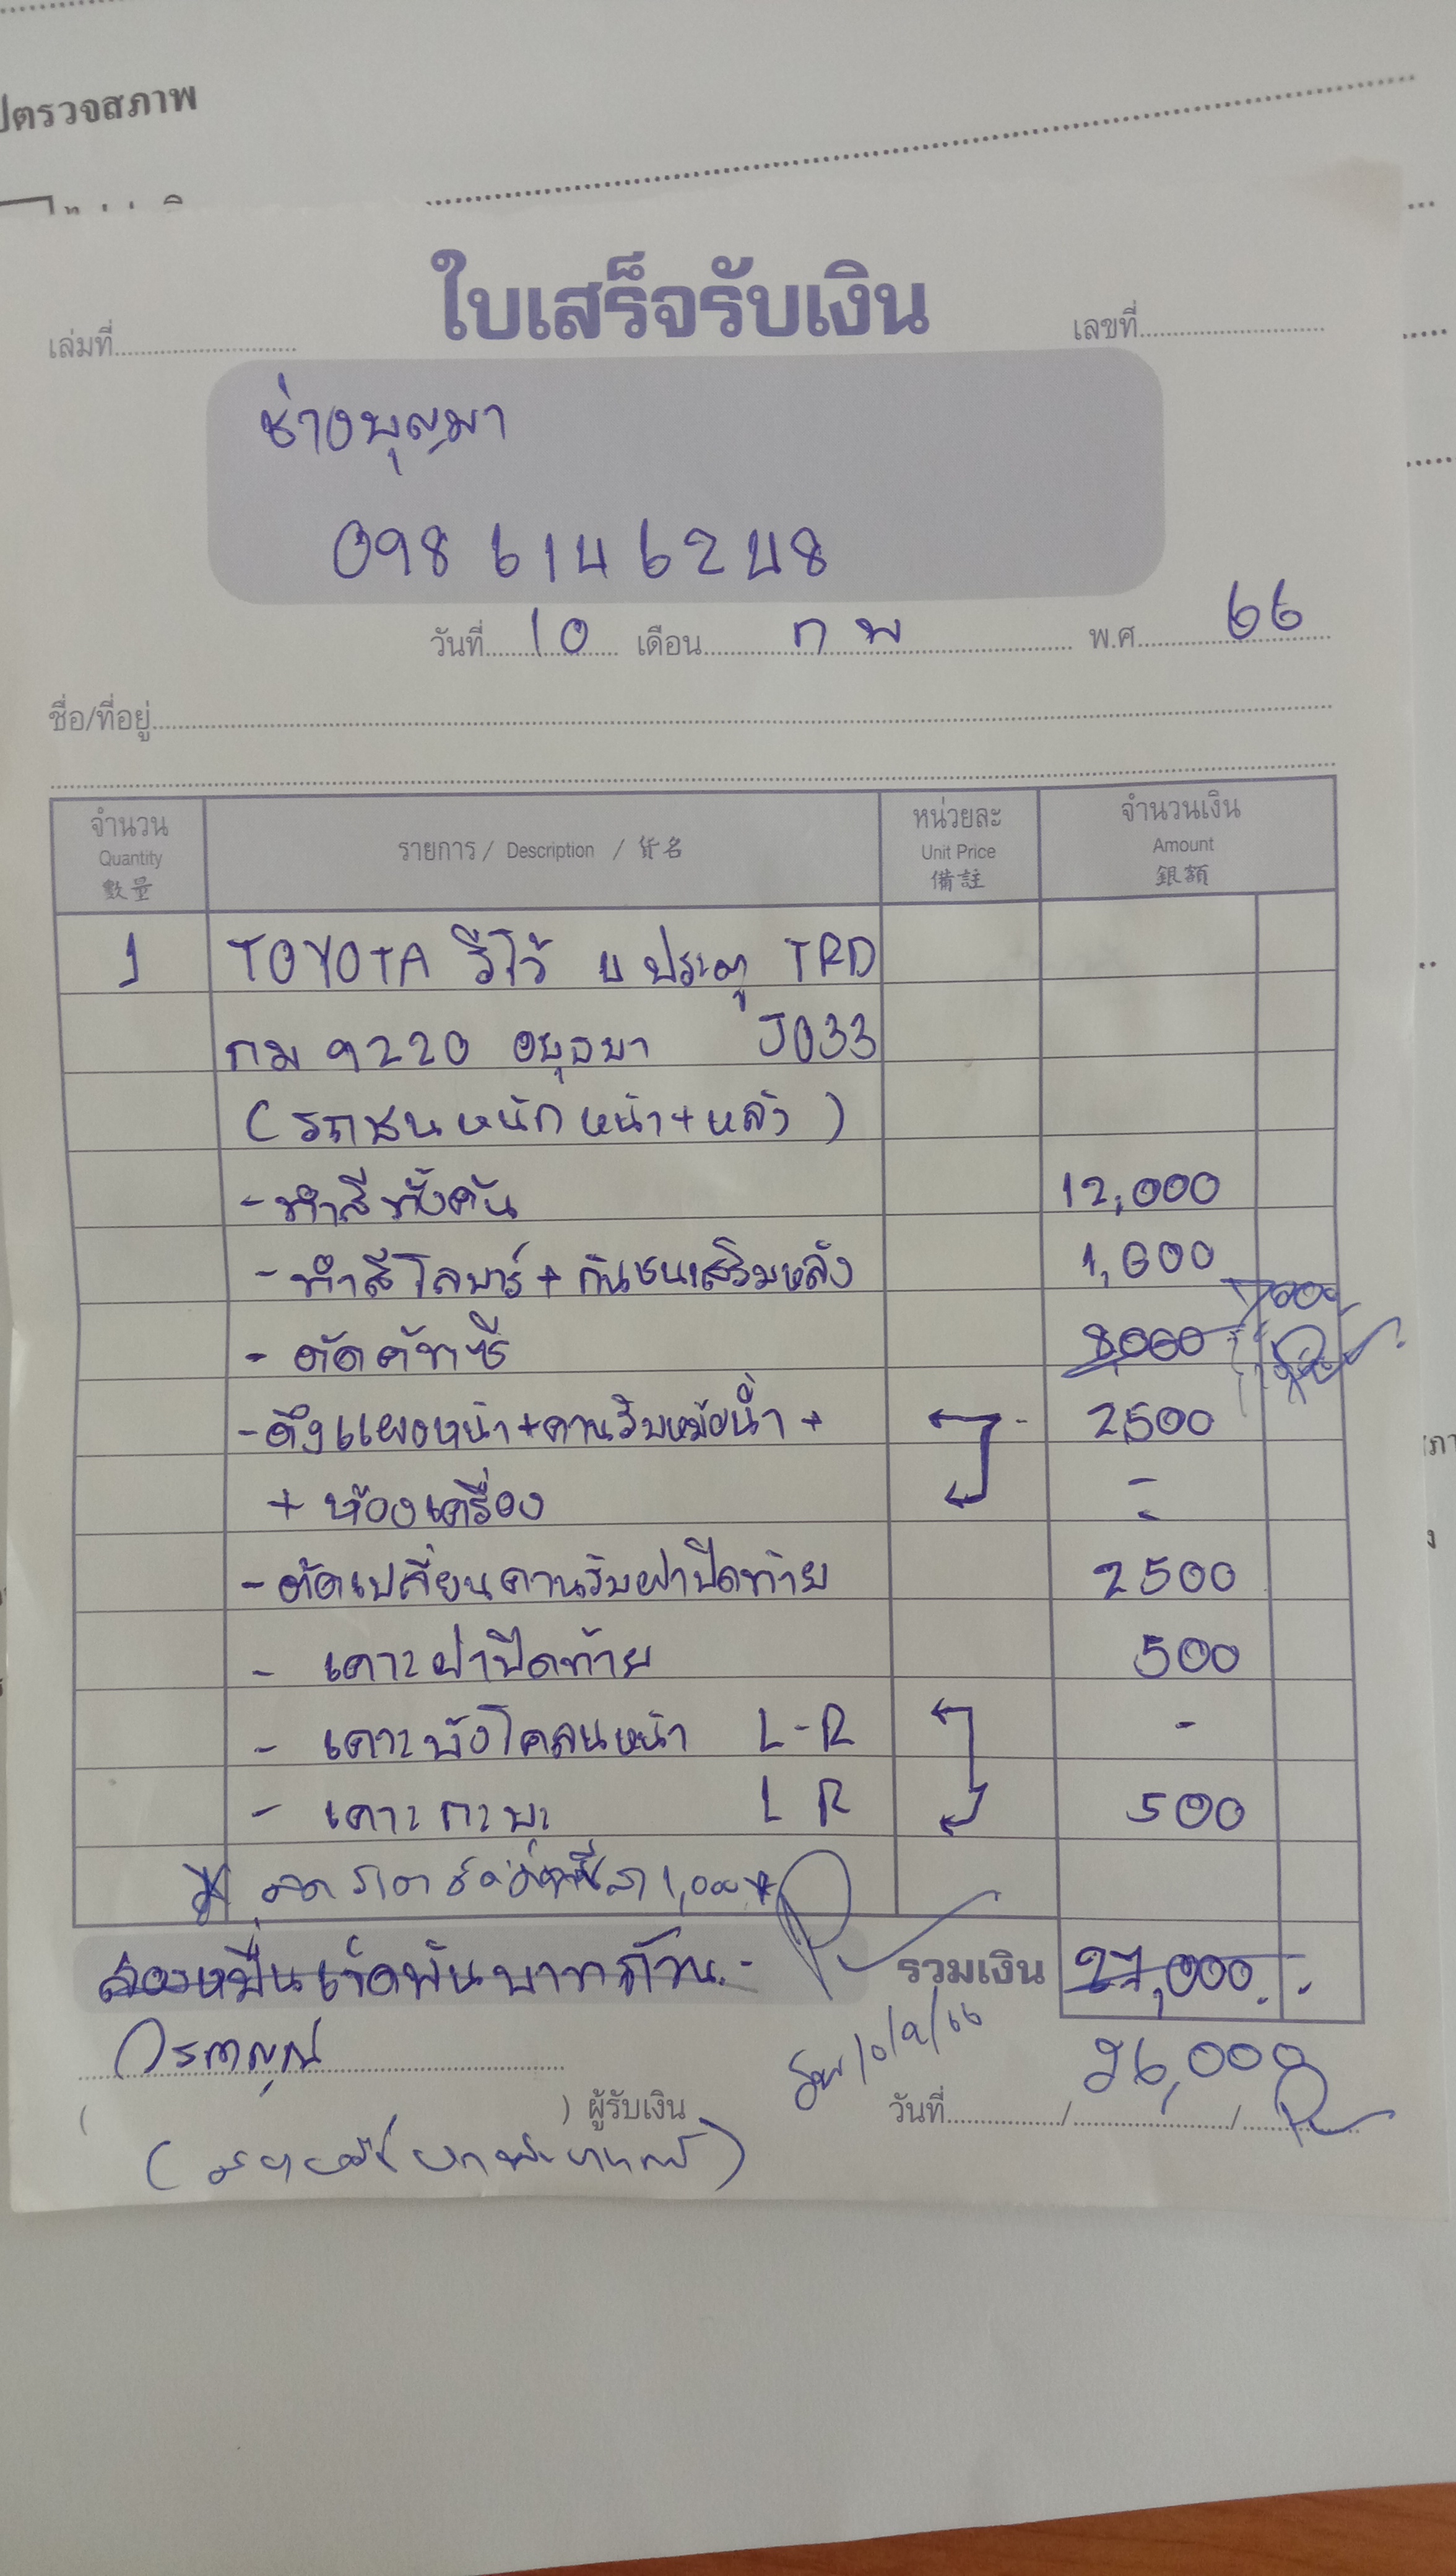 ปตรวจสภาพ
ใบเสร็จรับเงิน
เล่มที่
เลขที่
ช่างบุญมา
098 6146248
วันที่ 10 เดือน กพ พ.ศ. 66
ชื่อ/ที่อยู่
จำนวน รายการ / Description / 貨名 หน่วยละ จำนวนเงิน
Quantity Unit Price Amount
數量 備註 銀額
1 TOYOTA รีโว้ 4 ประตู TRD
กม 9220 อยุธยา J033
(รถชนหนัก หน้า+หลัง)
- ทำสีทั้งคัน 12,000
- ทำสีโลบาร์ + กันชนเสริมหลัง 1,000
7000
- ตัดคัทซี 8,000
- ดึงแผงหน้า+คานรับหม้อน้ำ + 2,500
+ ห้องเครื่อง -
- ตัดเปลี่ยนคานรับฝาปิดท้าย 2500
- เคาะฝาปิดท้าย 500
- เคาะบังโคลนหน้า L-R -
- เคาะกะบะ L R 500
1,000
สองหมื่นเจ็ดพันบาทถ้วน.- รวมเงิน 27,000.-
26,000
10/2/66
) ผู้รับเงิน วันที่ / /